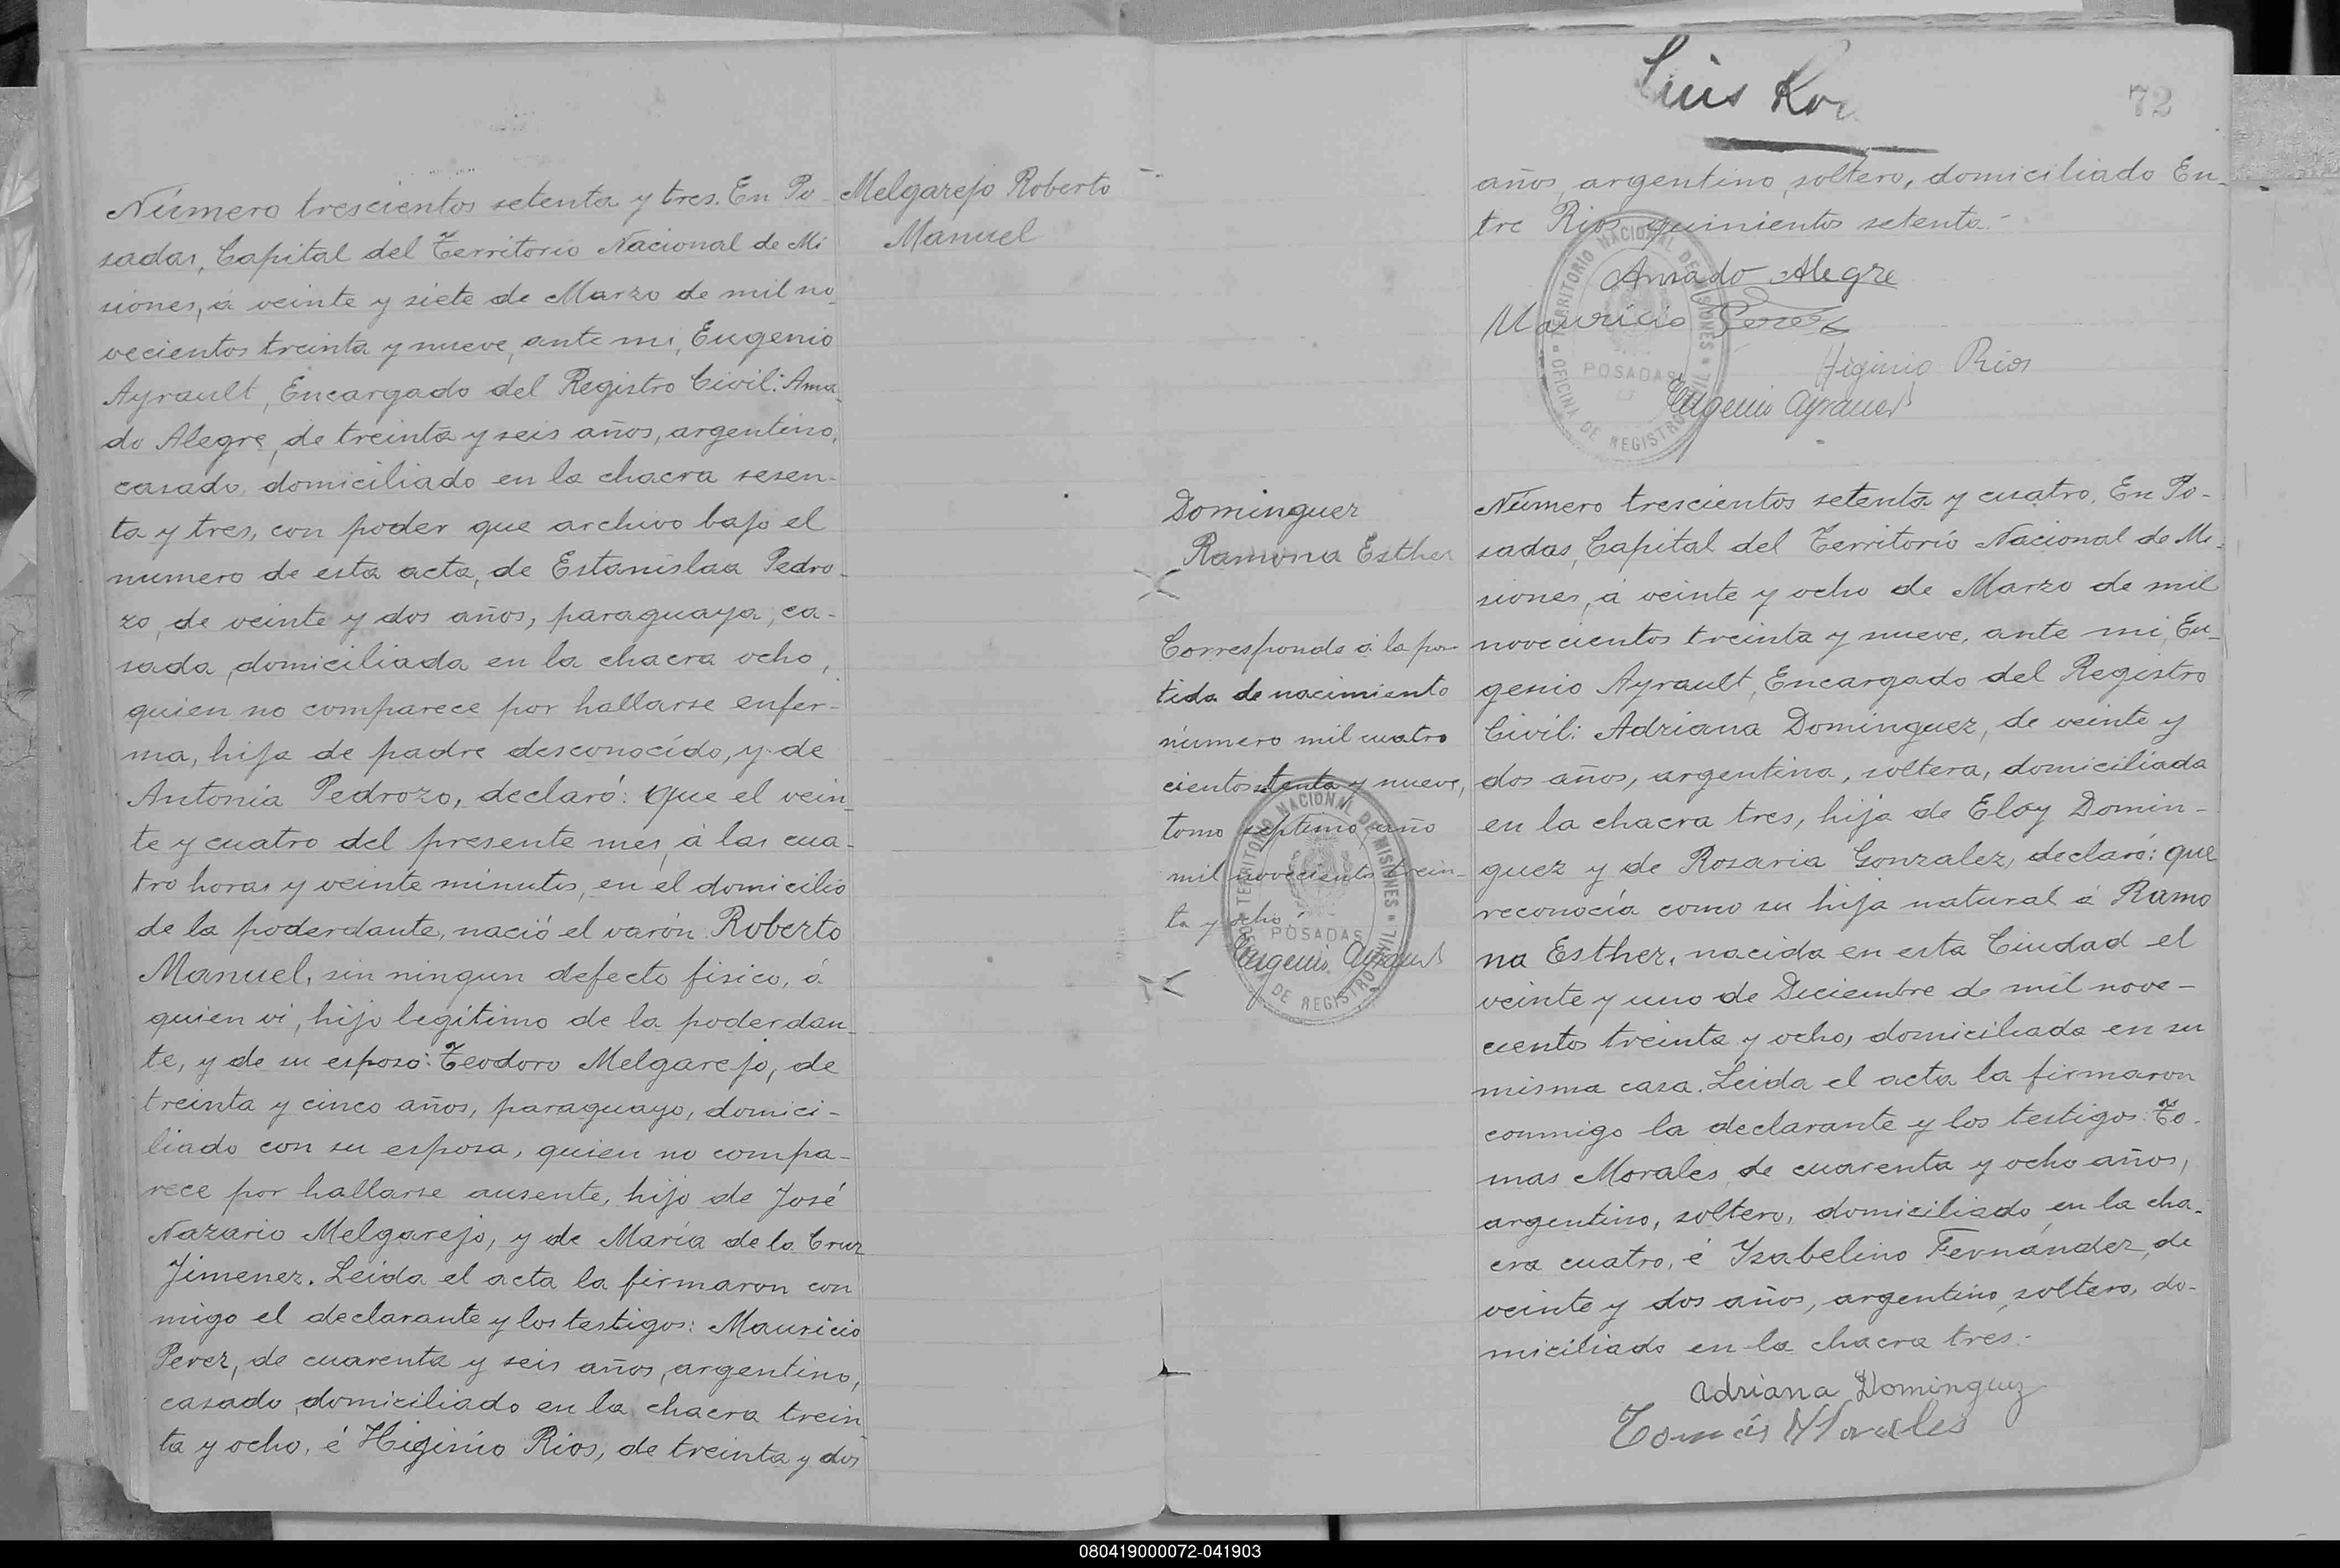 Número trescientos setenta y tres. En Po-
sadas, Capital del Territorio Nacional de Mi
siones, á veinte y siete de Marzo de mil no-
vecientos treinta y nueve, ante mi, Eugenio
Ayrault, Encargado del Registro Civil: Ama-
do Alegre, de treinta y seis años, argentino,
casado, domiciliado en la chacra sesen-
ta y tres, con poder que archivo bajo el
numero de esta acta, de Estanislaa Pedro-
zo, de veinte y dos años, paraguaya, ca-
sada, domiciliada en la chacra ocho,
quien no comparece por hallarse enfer-
ma, hija de padre desconocido, y de
Antonia Pedrozo, declaró: Que el vein-
te y cuatro del presente mes, á las cua-
tro horas y veinte minutos, en el domicilio
de la poderdante, nació el varón Roberto
Manuel, sin ningun defecto fisico, á
quien vi, hijo legítimo de la poderdan-
te, y de su esposo: Teodoro Melgarejo, de
treinta y cinco años, paraguayo, domici-
liado con su esposa, quien no compa-
rece por hallarse ausente, hijo de José
Nazario Melgarejo, y de María de la Cruz
Jimenez. Leida el acta la firmaron con
migo el declarante y los testigos: Mauricio
Perez, de cuarenta y seis años, argentino,
casado, domiciliado en la chacra trein
ta y ocho, é Higinio Rios, de treinta y dos
Melgarejo Roberto
Manuel
Luis
72
años, argentino, soltero, domiciliado En-
tre Rios quinientos setenta.-
Amado Alegre
Mauricio Perez
Higinio Rios
Eugenio Ayrault
TERRITORIO NACIONAL DE MISIONES
POSADAS
OFICINA DE REGISTRO CIVIL
Dominguez
Ramona Esther
Corresponde á la par
tida de nacimiento
número mil cuatro
cientos setenta y nueve,
tomo septimo, año
mil novecientos trein-
ta y ocho.
Eugenio Ayrault
TERRITORIO NACIONAL DE MISIONES
POSADAS
DE REGISTRO CIVIL
Número trescientos setenta y cuatro. En Po-
sadas, Capital del Territorio Nacional de Mi-
siones, á veinte y ocho de Marzo de mil
novecientos treinta y nueve, ante mi, Eu-
genio Ayrault, Encargado del Registro
Civil: Adriana Dominguez, de veinte y
dos años, argentina, soltera, domiciliada
en la chacra tres, hija de Eloy Domin-
guez y de Rosaria Gonzalez, declaró: que
reconocía como su hija natural á Ramo
na Esther, nacida en esta Ciudad el
veinte y uno de Diciembre de mil nove-
cientos treinta y ocho, domiciliada en su
misma casa. Leida el acta la firmaron
conmigo la declarante y los testigos: To-
mas Morales, de cuarenta y ocho años,
argentino, soltero, domiciliado en la cha-
cra cuatro, é Ysabelino Fernández, de
veinte y dos años, argentino, soltero, do-
miciliado en la chacra tres.-
Adriana Dominguez
Tomás Morales
080419000072-041903